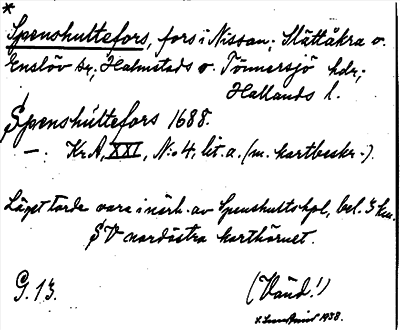 *
Spenshultefors, fors i Nissan; Slättåkra o.
Enslöv sn; Halmstads o. Tönnersjö hdr;
Hallands l.
Spenshúltefors 1688.
—: Kr.A, XXI, N:o 4, lit. a. (m. kartbeskr-).
Läget torde vara i närh. av Spenshults hpl, bel. 3 km.
SV nordöstra karthörnet.
G. 13.
(Vänd!)
1938.